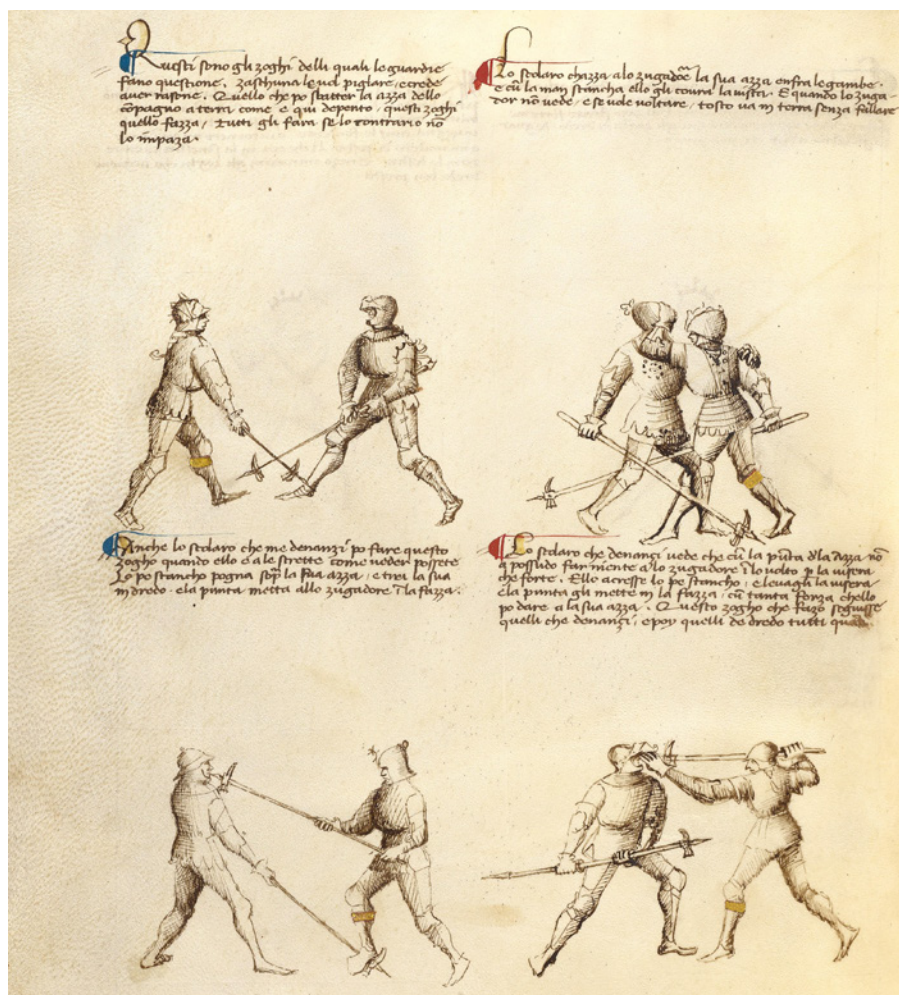 Questi sono gli zoghi delli quali le guardie
fano questione. Zaschuna le vol pigliare, e crede
aver rasone. Quello che po sbatter la azza dello
compagno a terra come e qui depento, questi zoghi
quello fazza, tutti gli fara se lo contrario nō
lo impaza.
Lo scolaro chazza a lo zugadore la sua azza enfra le gambe.
e cū la man stancha ello gli covra la vista. E quando lo zuga
dor nō vede, e se vole voltare, tosto va in terra senza fallire
Anche lo scolaro che me denanzi po fare questo
zogho quando ello e a le strette come veder possete
Lo pe stancho pogna sopra la sua azza, e tiri la sua
in dredo. e la punta metta allo zugadore ī la fazza.
Lo scolaro che denanzi vede che cū la pūta dla Azza nō
possudo far niente a lo zugadore ī lo volto p la visera
che forte. Ello acresse lo pe stancho, e levagli la visera
e la punta gli mette in la fazza, cū tanta forza chello
po dare a la sua azza. Questo zogho che fazo seguisse
quelli che denanzi, e poy quelli de dredo tutti